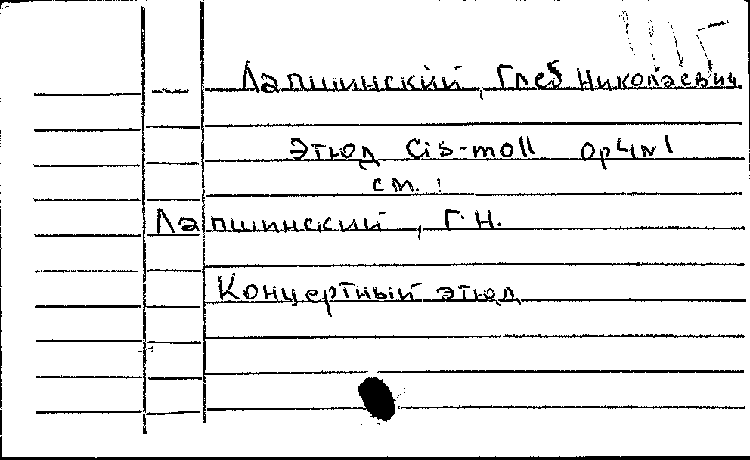 Лапшинский, Глеб Николаевич
Этюд Cis-moll op4N1
см.:
Лапшинский, Г.Н.
Концертный этюд